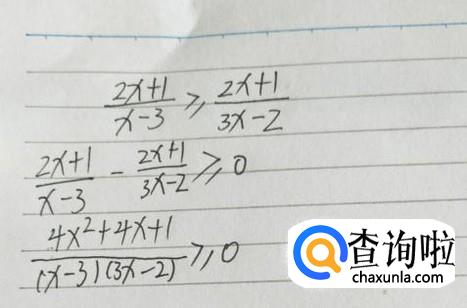 (2x+1)/(x-3) ≥ (2x+1)/(3x-2)
(2x+1)/(x-3) - (2x+1)/(3x-2) ≥ 0
(4x²+4x+1)/((x-3)(3x-2)) ≥ 0
查询啦
chaxunla.com